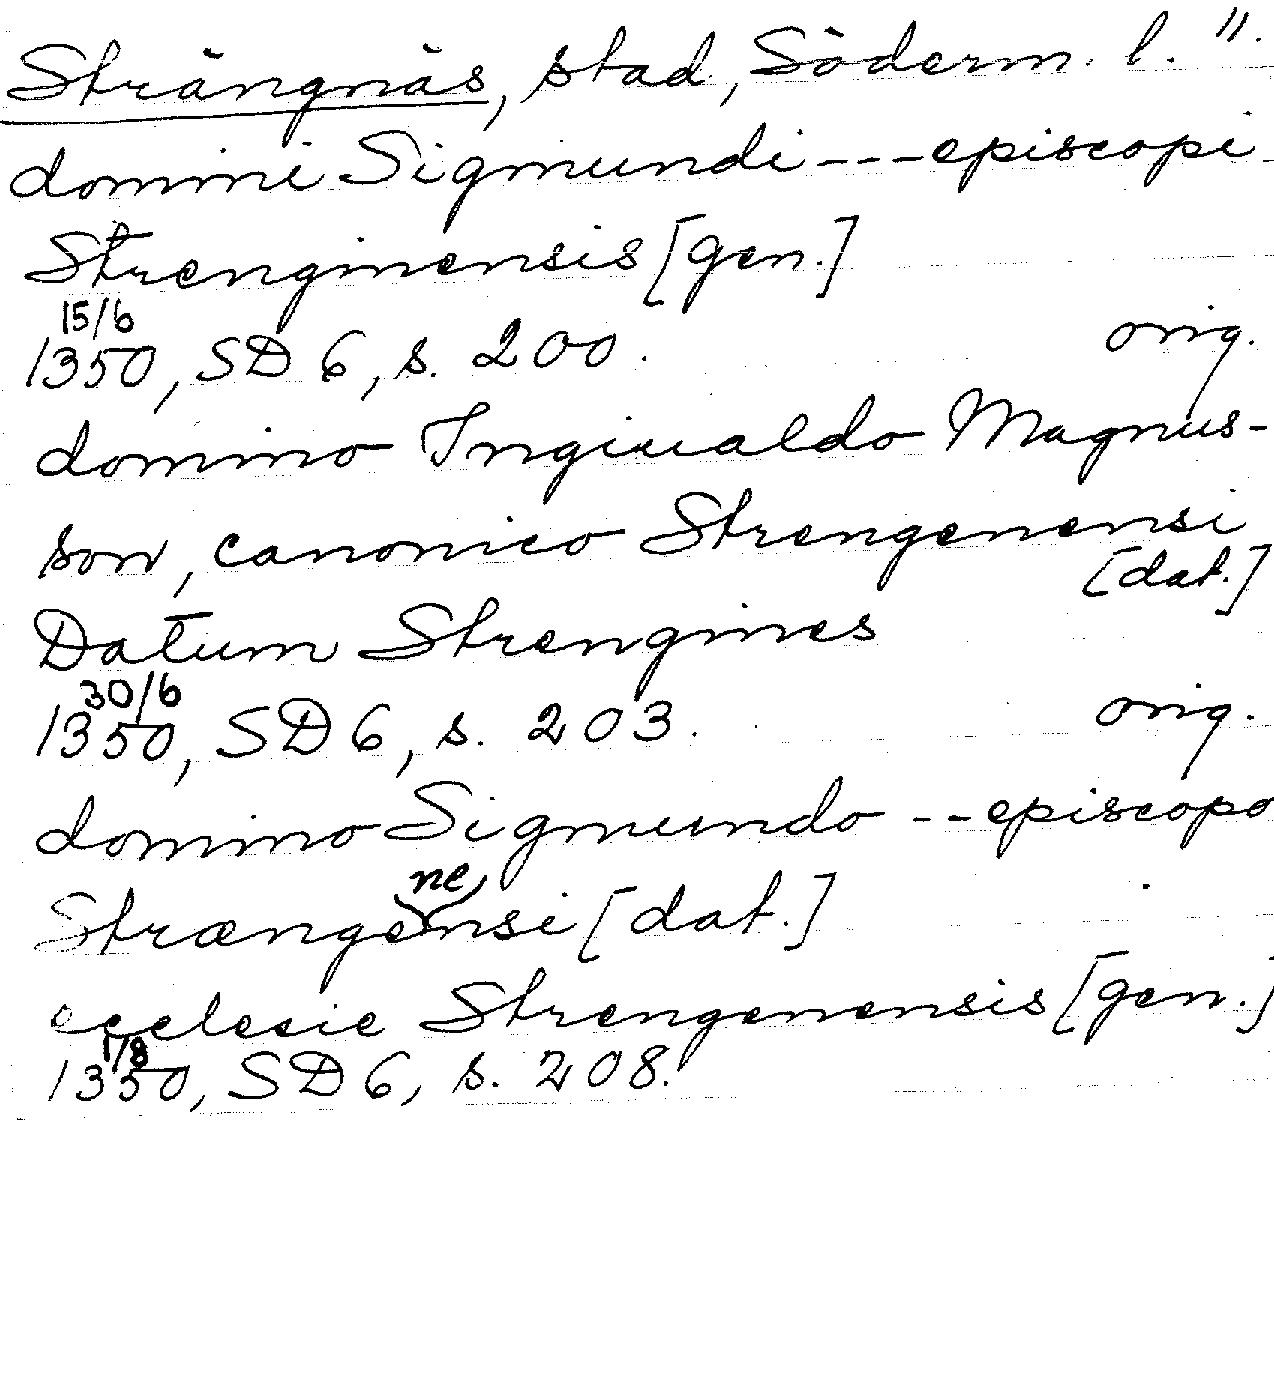 Strängnäs, stad, Söderm. l. ".
domini Sigmundi --- episcopi
Strenginensis [gen.]
15/6
1350, SD 6, s. 200. orig.
domino Ingiualdo Magnus-
son, canonico Strengenensi
[dat.]
Datum Strengines
30/6
1350, SD 6, s. 203. orig.
domino Sigmundo -- episcopo
ne
Strængensi [dat.]
ecclesie Strengenensis [gen.]
1/8
1350, SD 6, s. 208.